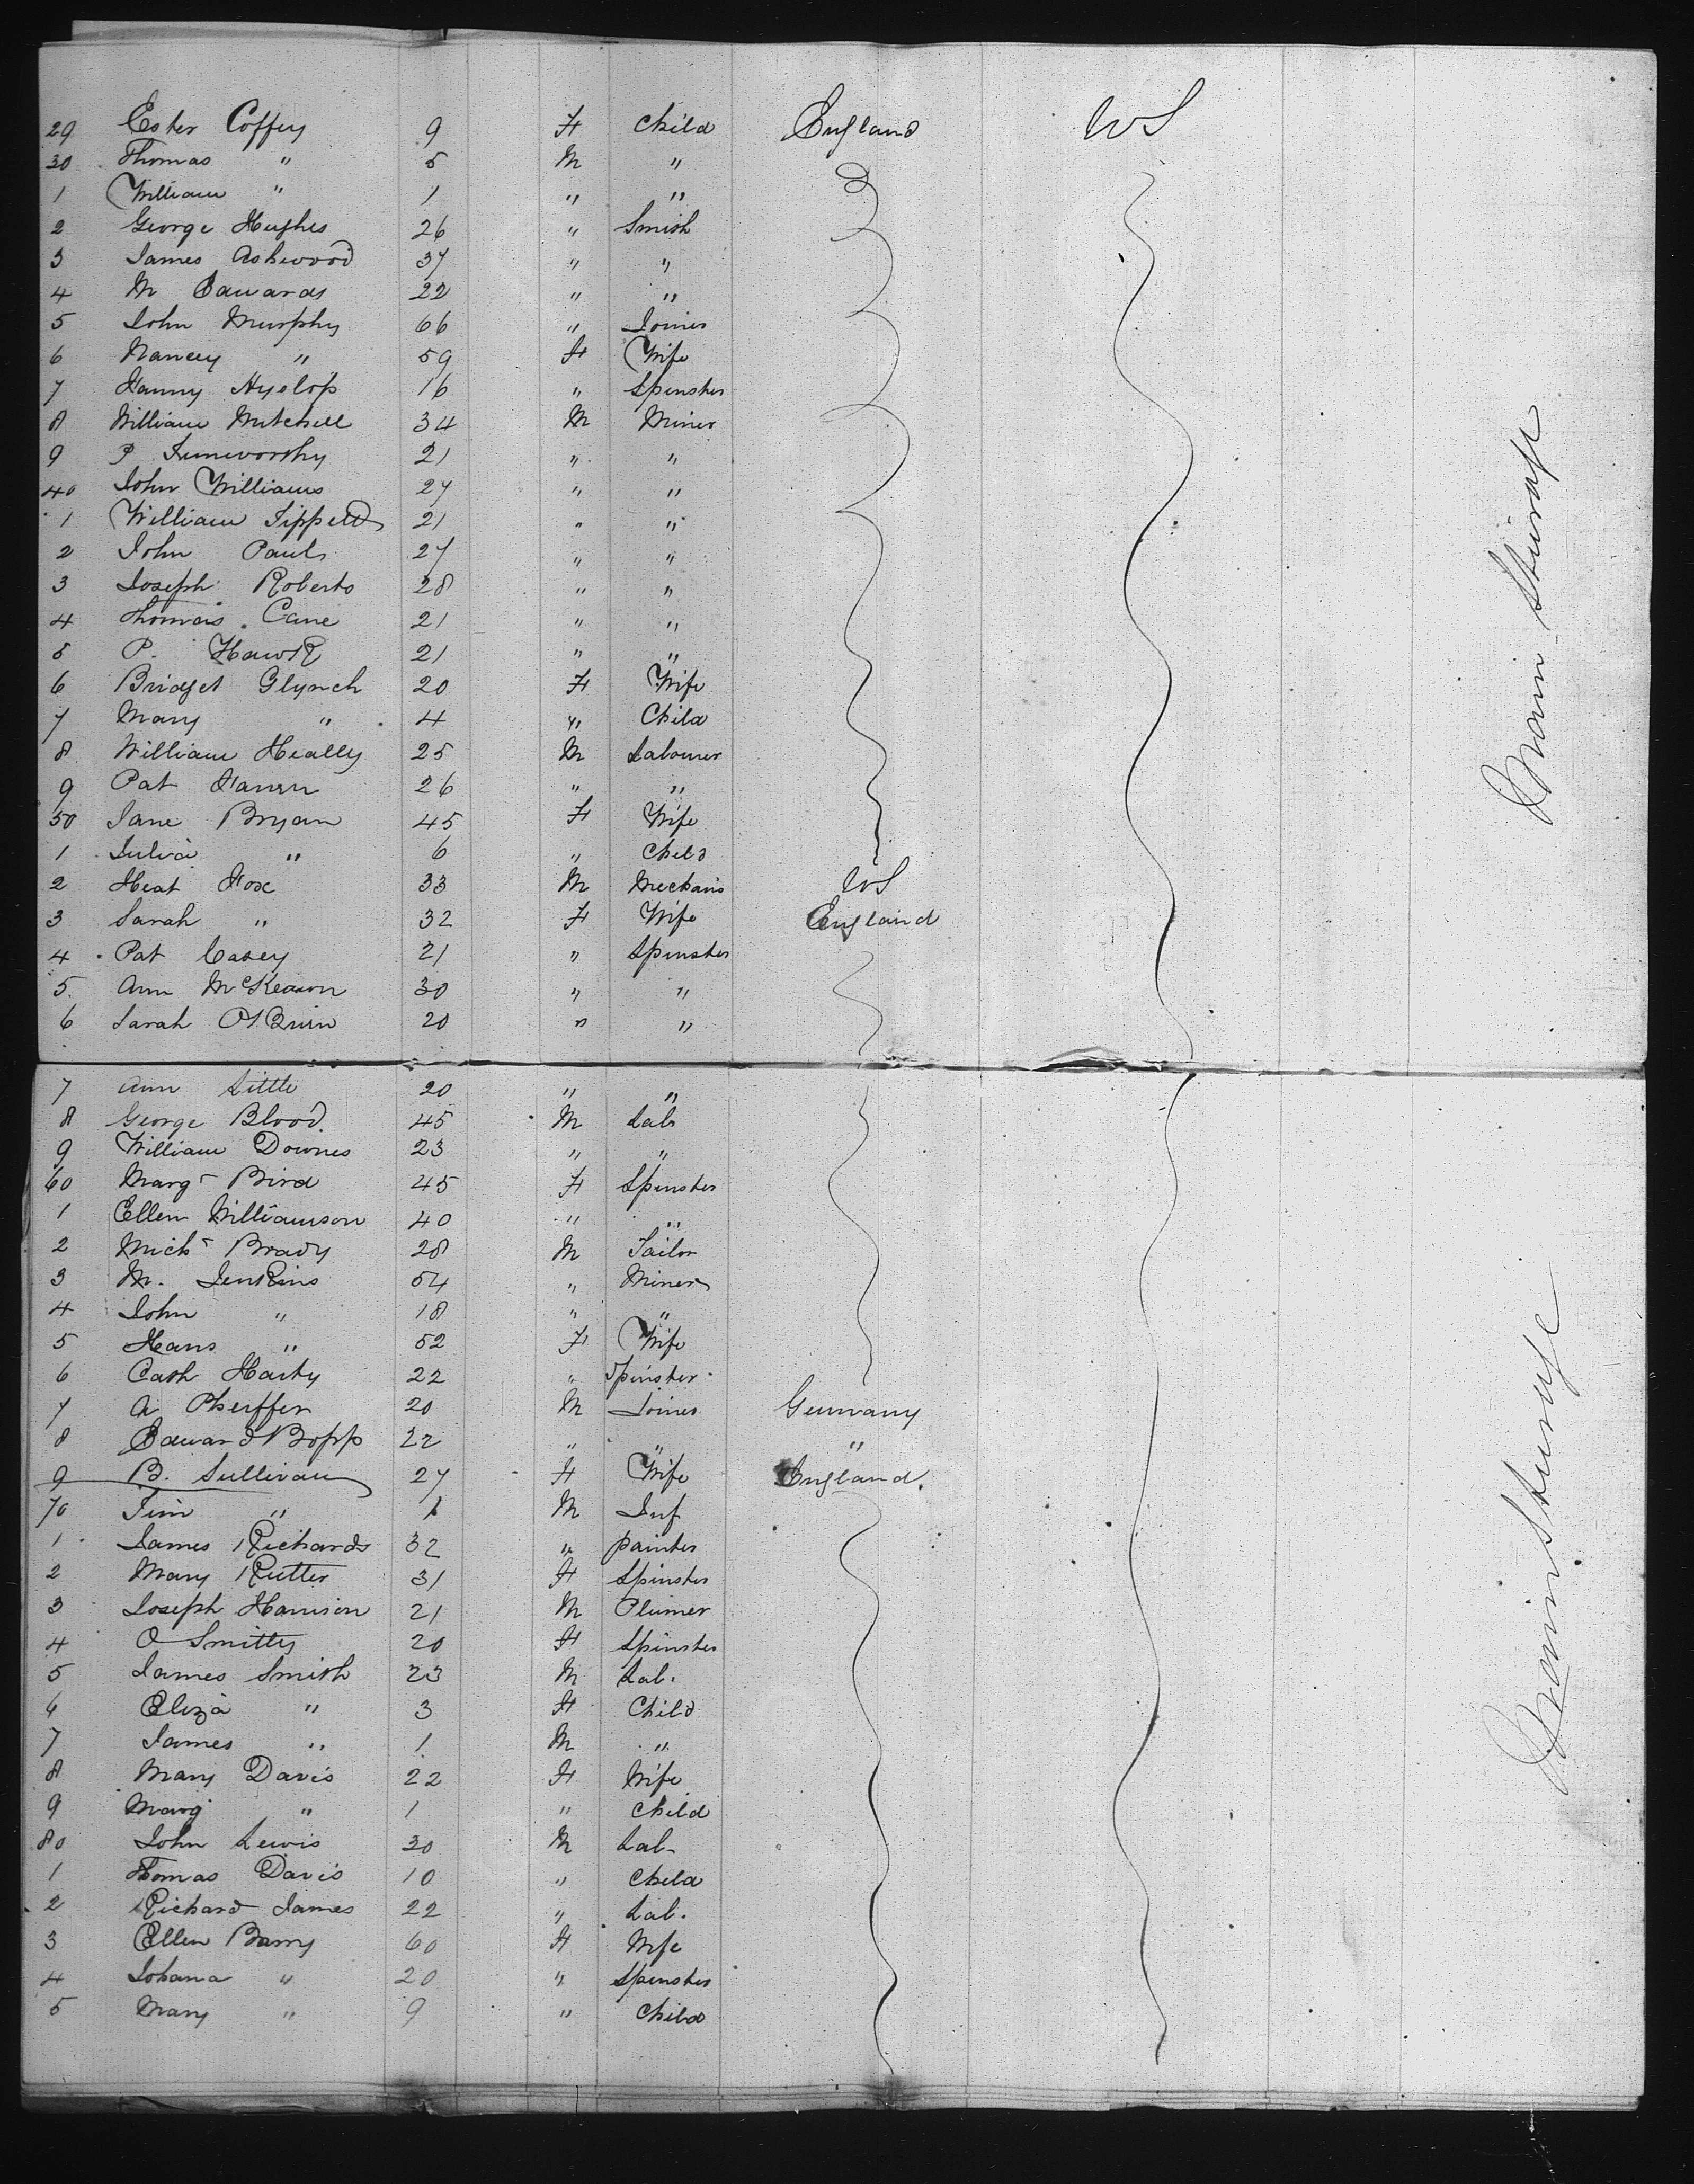 29 Ester Coffey 9 F Child England US
30 Thomas " 5 M "
1 William " 1 " "
2 George Hughes 26 " Smith
3 James Ashwood 37 " "
4 M Edwards 22 " "
5 John Murphy 66 " Joiner
6 Nancy " 59 F Wife
7 Fanny Hyslop 16 " Spinster
8 William Mitchell 34 M Miner
9 P 21 " "
40 John Williams 27 " "
1 William Tippett 21 " "
2 John Pauls 27 " "
3 Joseph Roberts 28 " "
4 Thomas Cane 21 " "
5 P. Hawk 21 " "
6 Bridget Glynch 20 F Wife
7 Mary " 4 " Child
8 William Heally 25 M Labourer
9 Pat 26 " "
50 Jane Bryan 45 F Wife
1 Julia " 6 " Child
2 Heat Fox 33 M Mechanic US
3 Sarah " 32 F Wife England
4 Pat Casey 21 " Spinster
5 Ann McKeown 30 " "
6 Sarah O'Brien 20 " "
7 Ann Little 20 " "
8 George Blood 45 M Lab
9 William Downes 23 " "
60 Margt Bird 45 F Spinster
1 Ellen Williamson 40 " "
2 Michl Brady 28 M Tailor
3 M. Jenkins 54 " Miner
4 John " 18 " "
5 Hans " 52 F Wife
6 Cath Harty 22 " Spinster
7 A Pheiffer 20 M Joiner Germany
8 Edward Bopp 22 " " "
9 B. Sullivan 27 F Wife England
70 Tim " 1 M Inf
1 James Richards 32 " painter
2 Mary Rutter 31 F Spinster
3 Joseph Harrison 21 M Plumer
4 O Smitty 20 F Spinster
5 James Smith 23 M Lab.
6 Eliza " 3 F Child
7 James " 1 M "
8 Mary Davis 22 F Wife
9 Marg " 1 " Child
80 John Lewis 30 M Lab
1 Thomas Davis 10 " Child
2 Richard James 22 " Lab.
3 Ellen Barry 60 F Wife
4 Johana " 20 " Spinster
5 Mary " 9 " Child
Main Steerage
Main Steerage